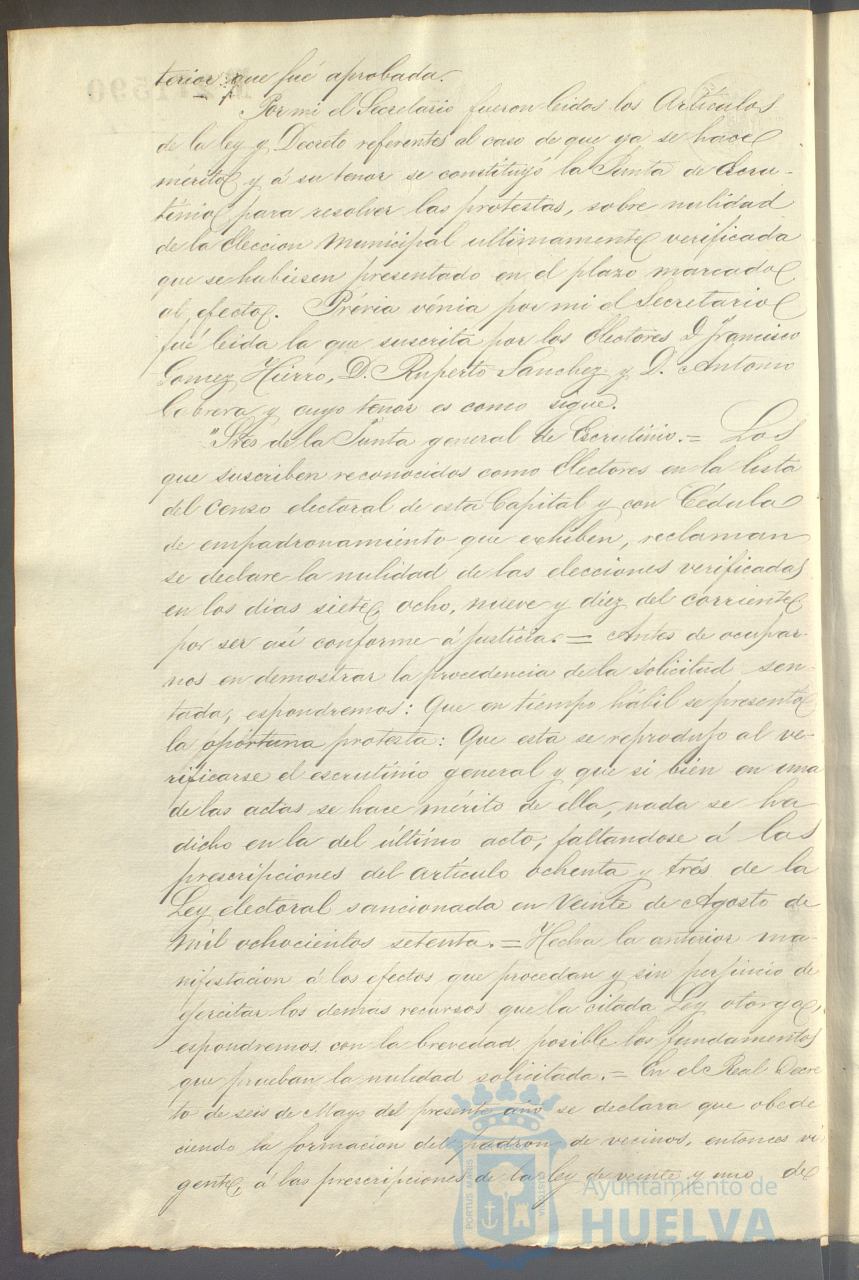 terior que fué aprobada.
Por mi el Secretario fueron leidos los Articulos
de la ley y Decreto referentes al caso de que ya se hace
mérito y á su tenor se constituyó la Junta de Escru-
tinio para resolver las protestas, sobre nulidad
de la Eleccion Municipal ultimamente verificada
que se habiesen presentado en el plazo marcado
al efecto. Prévia vénia por mi el Secretario
fué leida la que suscrita por los Electores D. Francisco
Gomez Hierro, D. Ruperto Sanchez y D. Antonio
Cabrera y cuyo tenor es como sigue.
"Sres de la Junta general de Escrutinio.= Los
que suscriben reconocidos como Electores en la lista
del Censo electoral de esta Capital y con Cédula
de empadronamiento que exhiben, reclaman
se declare la nulidad de las elecciones verificadas
en los dias siete, ocho, nueve y diez del corriente
por ser asi conforme á justicia.= Antes de ocupar-
nos en demostrar la procedencia de la solicitud sen-
tada, espondremos: Que en tiempo hábil se presentó
la oportuna protesta: Que esta se reprodujo al ve-
rificarse el escrutinio general y que si bien en una
de las actas se hace mérito de ella, nada se ha
dicho en la del último acto, faltandose á las
prescripciones del artículo ochenta y trés de la
Ley electoral sancionada en Veinte de Agosto de
mil ochocientos setenta.= Hecha la anterior ma-
nifestacion á los efectos que procedan y sin perjuicio de
ejercitar los demas recursos que la citada Ley otorga,
espondremos con la brevedad posible los fundamentos
que prueban la nulidad solicitada.= En el Real Decre
to de seis de Mayo del presente año se declara que obede
ciendo la formacion del padron de vecinos, entonces vi
gente, á las prescripciones de la ley de veinte y uno de
Ayuntamiento de
HUELVA